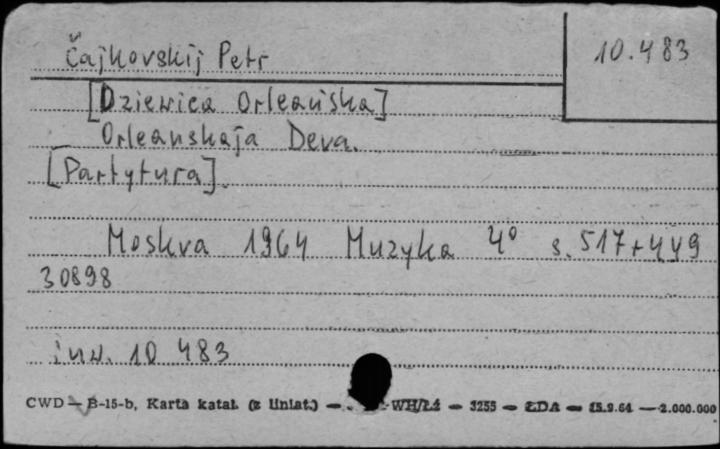 Čajkovskij Petr
10.483
[Dziewica Orleańska]
Orleanskaja Deva.
[Partytura].
Moskva 1964 Muzyka 4° s. 517+449
30898
inw. 10 483
CWD — B-15-b, Karta katal. (z liniat.) — WH/Łż — 3255 — ŁDA — 15.9.64 — 2.000.000